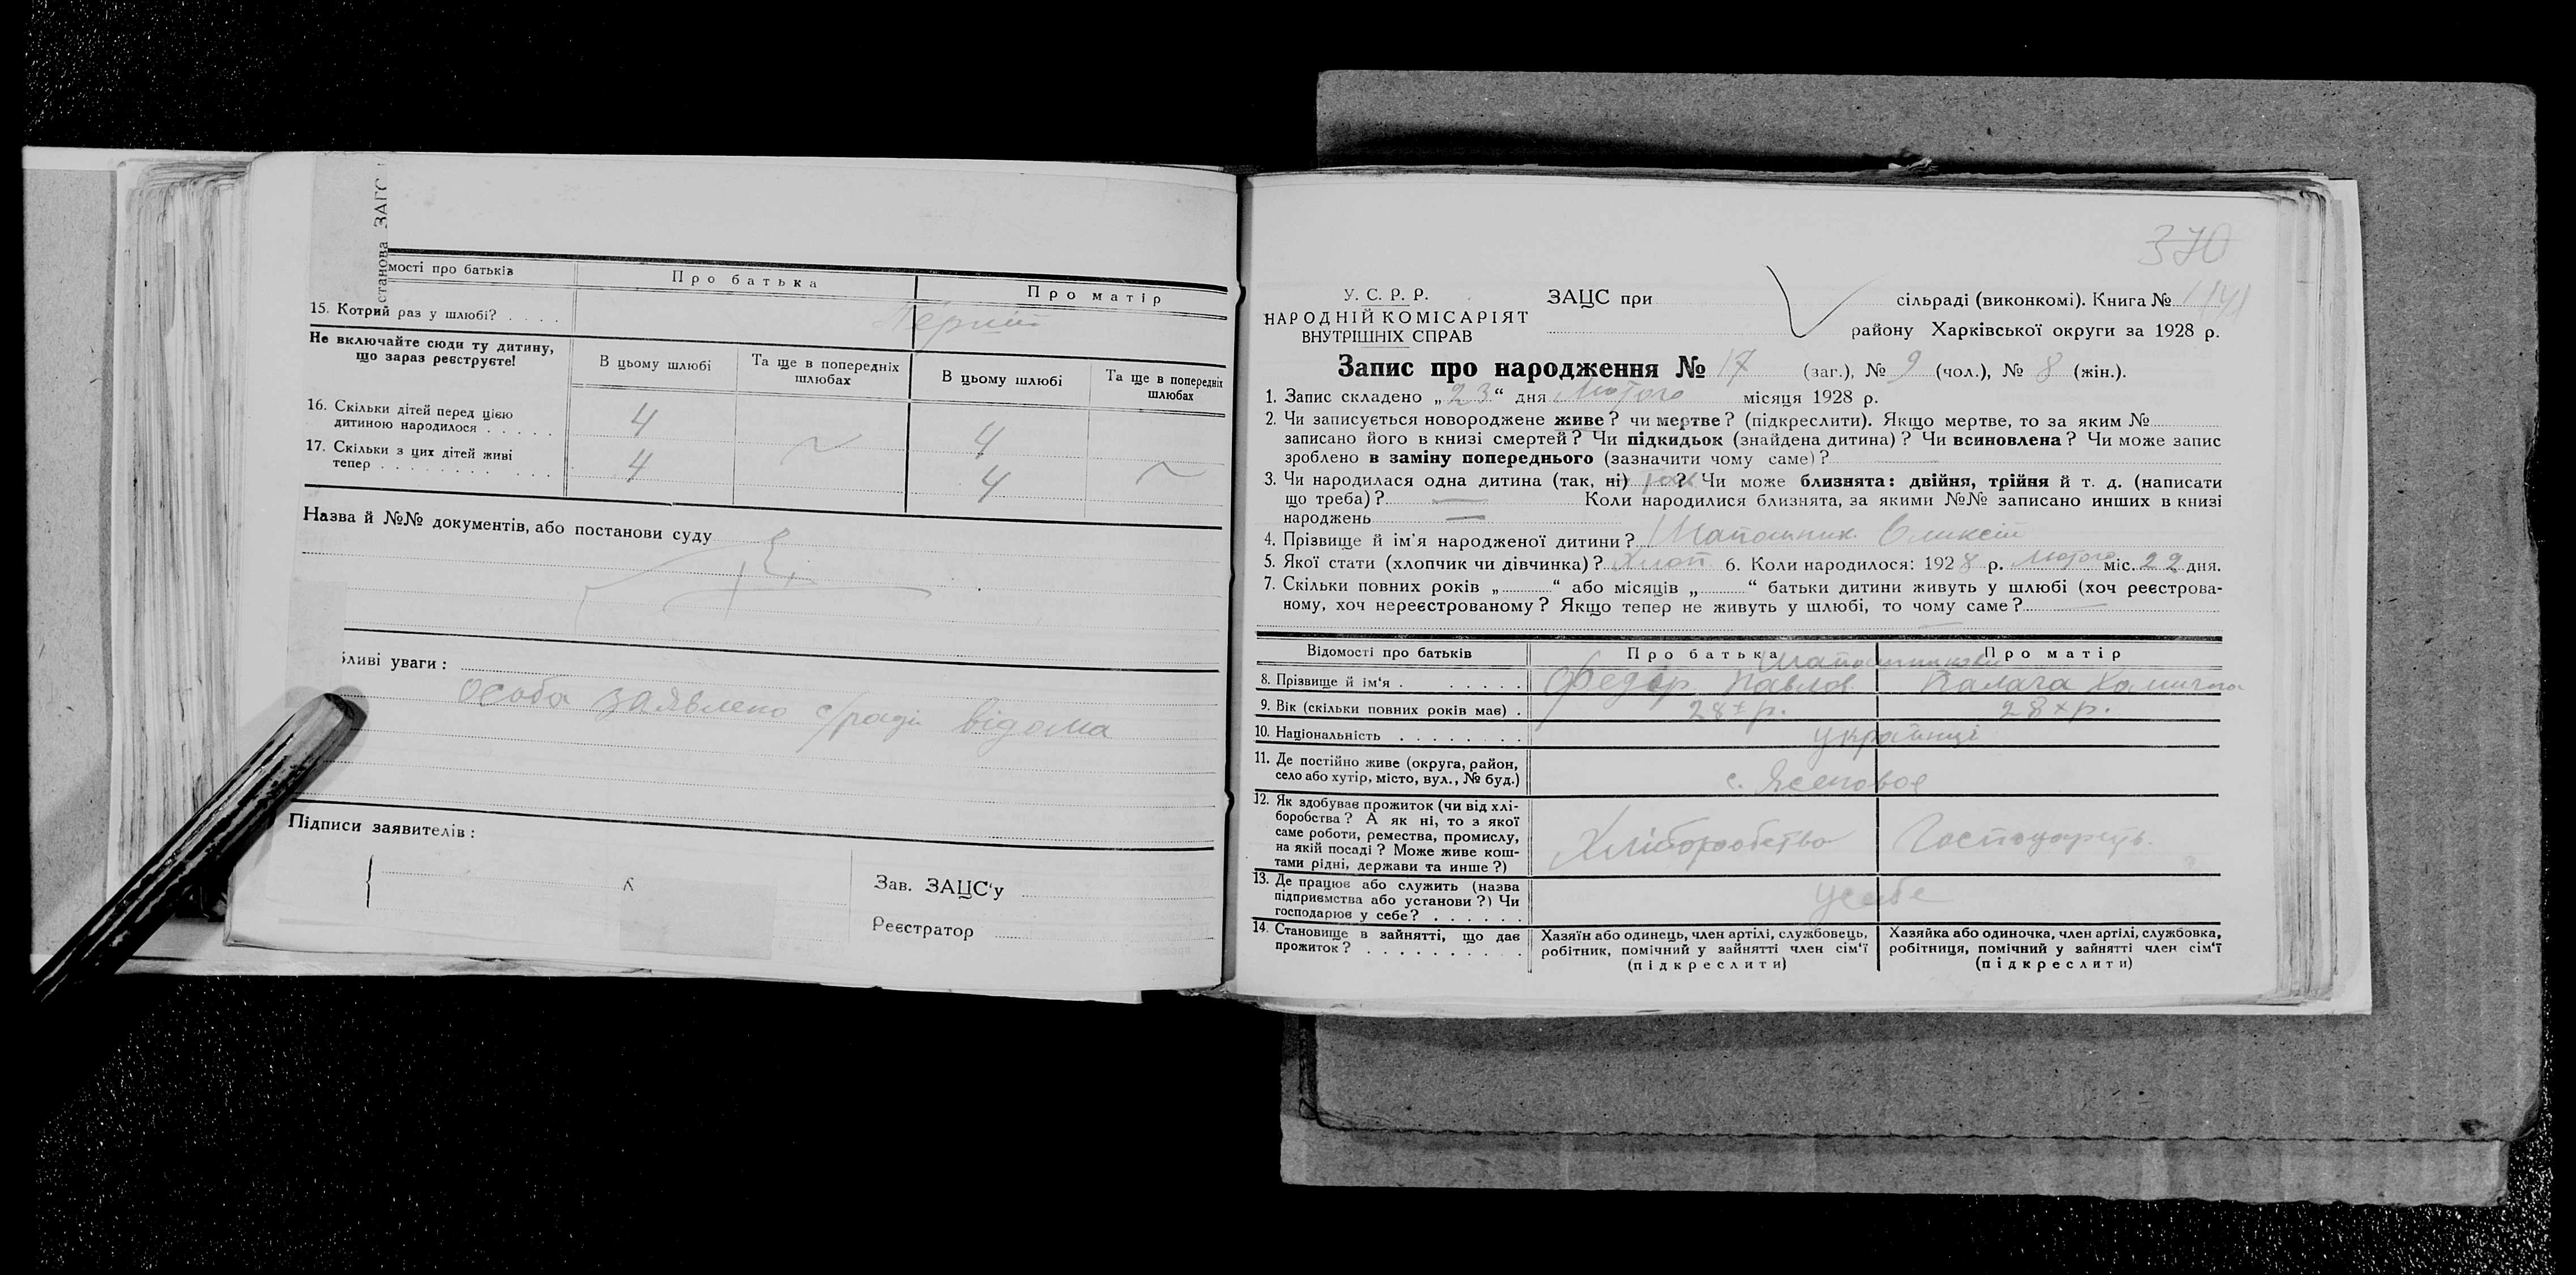 становa ЗАГС
мості про батьків
Про батька
Про матір
15. Котрий раз у шлюбі? . . . .
Перший
Не включайте сюди ту дитину,
що зараз реєструєте!
В цьому шлюбі
Та ще в попередніх
шлюбах
В цьому шлюбі
Та ще в попередніх
шлюбах
16. Скільки дітей перед цією
дитиною народилося . . . . .
4
~
4
17. Скільки з цих дітей живі
тепер . . . . . . . . . . .
4
4
~
Назва й №№ документів, або постанови суду
ливі уваги :
Особа заявлено с/раді відома
Підписи заявителів :
Зав. ЗАЦС'у
Реєстратор
370
У. С. Р. Р.
НАРОДНІЙ КОМІСАРІЯТ
ВНУТРІШНІХ СПРАВ
ЗАЦС при
сільраді (виконкомі). Книга №
району Харківської округи за 1928 р.
Запис про народження № 17 (заг.), № 9 (чол.), № 8 (жін.).
1. Запис складено „23“ дня Лютого місяця 1928 р.
2. Чи записується новороджене живе? чи мертве? (підкреслити). Якщо мертве, то за яким №
записано його в книзі смертей? Чи підкидьок (знайдена дитина)? Чи всиновлена? Чи може запис
зроблено в заміну попереднього (зазначити чому саме)? —
3. Чи народилася одна дитина (так, ні) так? Чи може близнята: двійня, трійня й т. д. (написати
що треба)? — Коли народилися близнята, за якими №№ записано инших в книзі
народжень —
4. Прізвище й ім'я народженої дитини? Шапошник Оликсій
5. Якої стати (хлопчик чи дівчинка)? Хлоп 6. Коли народилося: 1928 р. Лютого міс. 22 дня.
7. Скільки повних років „ “ або місяців „ “ батьки дитини живуть у шлюбі (хоч реєстрова-
ному, хоч нереєстрованому? Якщо тепер не живуть у шлюбі, то чому саме? —
Відомості про батьків
Про батька
Про матір
Шапошникови
8. Прізвище й ім'я . . . . . .
Федір Павлов
9. Вік (скільки повних років має) .
28 р.
28 р.
10. Національність . . . . . . . .
українці
11. Де постійно живе (округа, район,
село або хутір, місто, вул., № буд.)
с. Ясеновое
12. Як здобуває прожиток (чи від хлі-
боробства? А як ні, то з якої
саме роботи, ремества, промислу,
на якій посаді? Може живе кош-
тами рідні, держави та инше?)
Хліборобство
13. Де працює або служить (назва
підприємства або установи?) Чи
господарює у себе? . . . . . .
у себе
14. Становище в зайнятті, що дає
прожиток? . . . . . . . . . .
Хазяїн або одинець, член артілі, службовець,
робітник, помічний у зайнятті член сім'ї
(підкреслити)
Хазяйка або одиночка, член артілі, службовка,
робітниця, помічний у зайнятті член сім'ї
(підкреслити)